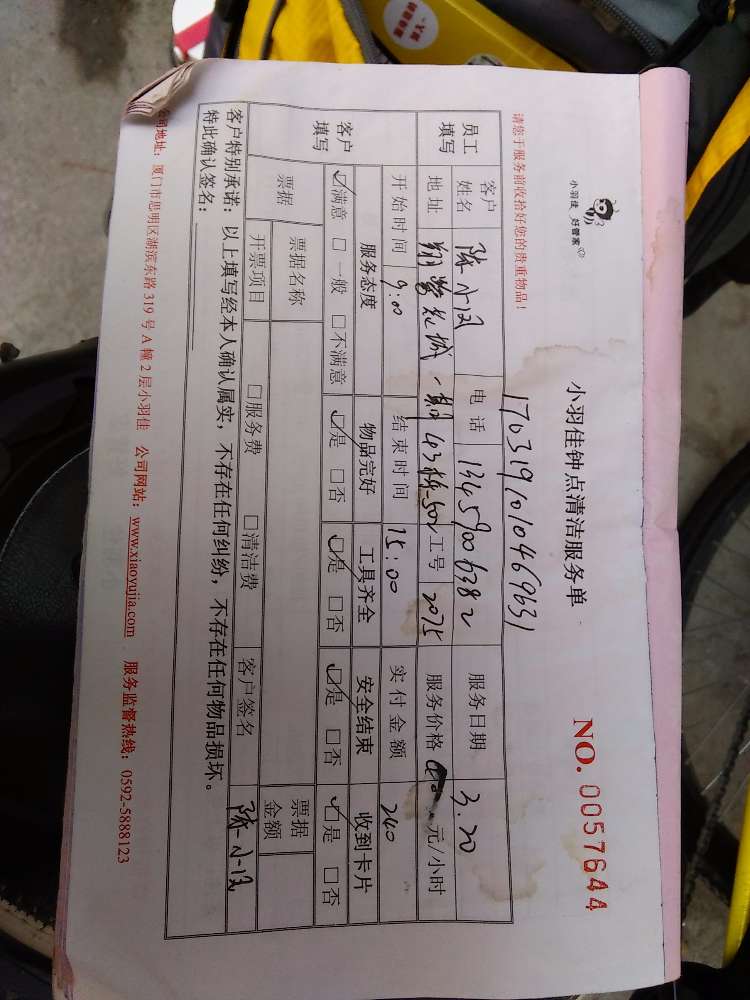 小羽佳 好管家
小羽佳钟点清洁服务单
NO. 0057644
1703191010469631
请您于服务前收拾好您的贵重物品！
员工填写 客户姓名 陈小 电话 13459006382 服务日期 3.20
地址 翔鹭花城一期43栋-501 工号 2075 服务价格 元/小时
客户填写 开始时间 9:00 结束时间 15:00 实付金额 240
服务态度 物品完好 工具齐全 安全结束 收到卡片
☑满意 □一般 □不满意 ☑是 □否 ☑是 □否 ☑是 □否 ☑是 □否
票据 票据名称 票据金额
开票项目 □服务费 □清洁费 客户签名 陈小
客户特别承诺：以上填写经本人确认属实，不存在任何纠纷，不存在任何物品损坏。
特此确认签名：
公司地址：厦门市思明区湖滨东路 319 号 A 幢 2 层小羽佳 公司网站：www.xiaoyujia.com 服务监督热线：0592-5888123